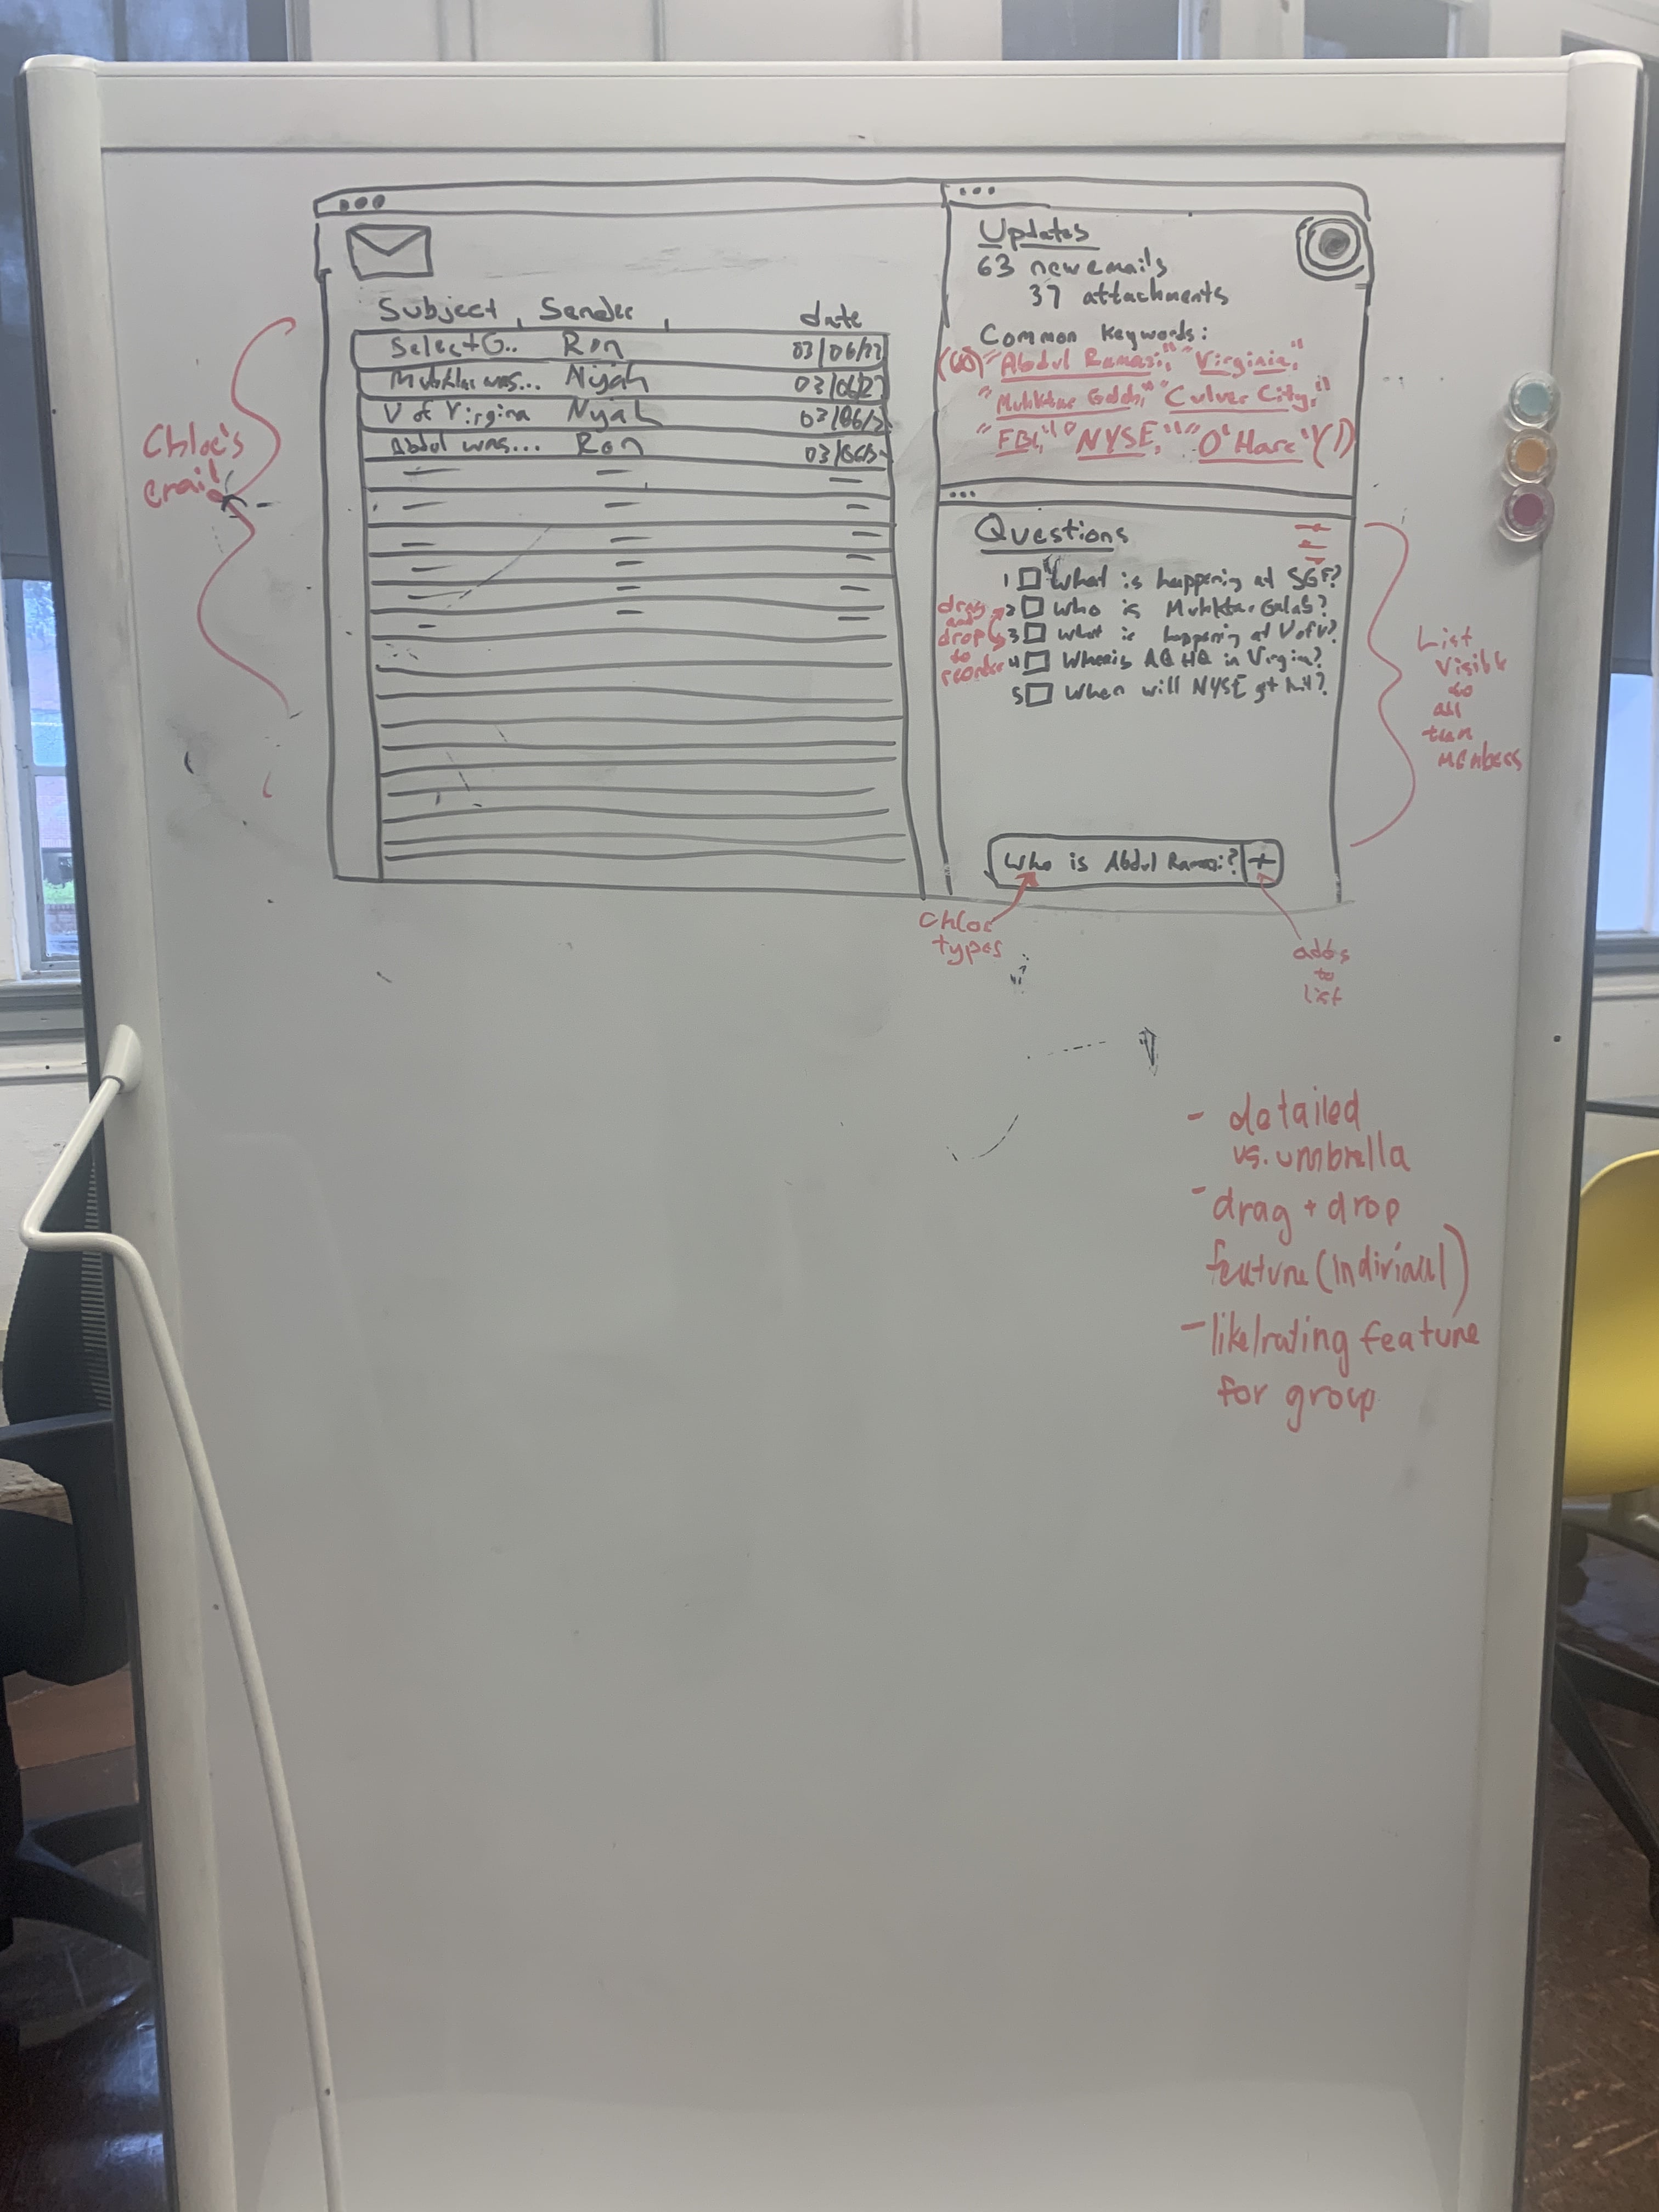 Subject, Sender, date
Select G.. Ron 03/06/23
Muhktar was... Niyah 03/06/23
V of Virgina Nyah 03/06/2
Abdul was... Ron 03/06/
Chloe's
email
Updates
63 new emails
37 attachments
Common Keywords:
"Abdul Ramazi," "Virginia,"
"Muhktar Galab," "Culver City,"
"FBI," "NYSE," "O'Hare" (1)
Questions
1 What is happening at SGF?
2 Who is Muhktar Galab?
3 What is happening at V of V?
4 Where is AQ HQ in Virgin?
5 When will NYSE get hit?
drag
and
drop
to
reorder
List
Visible
to
all
team
members
Who is Abdul Ramazi? +
Chloe
types
adds
to
list
- detailed
vs. umbrella
- drag + drop
feature (indiviaul)
- like/rating feature
for group